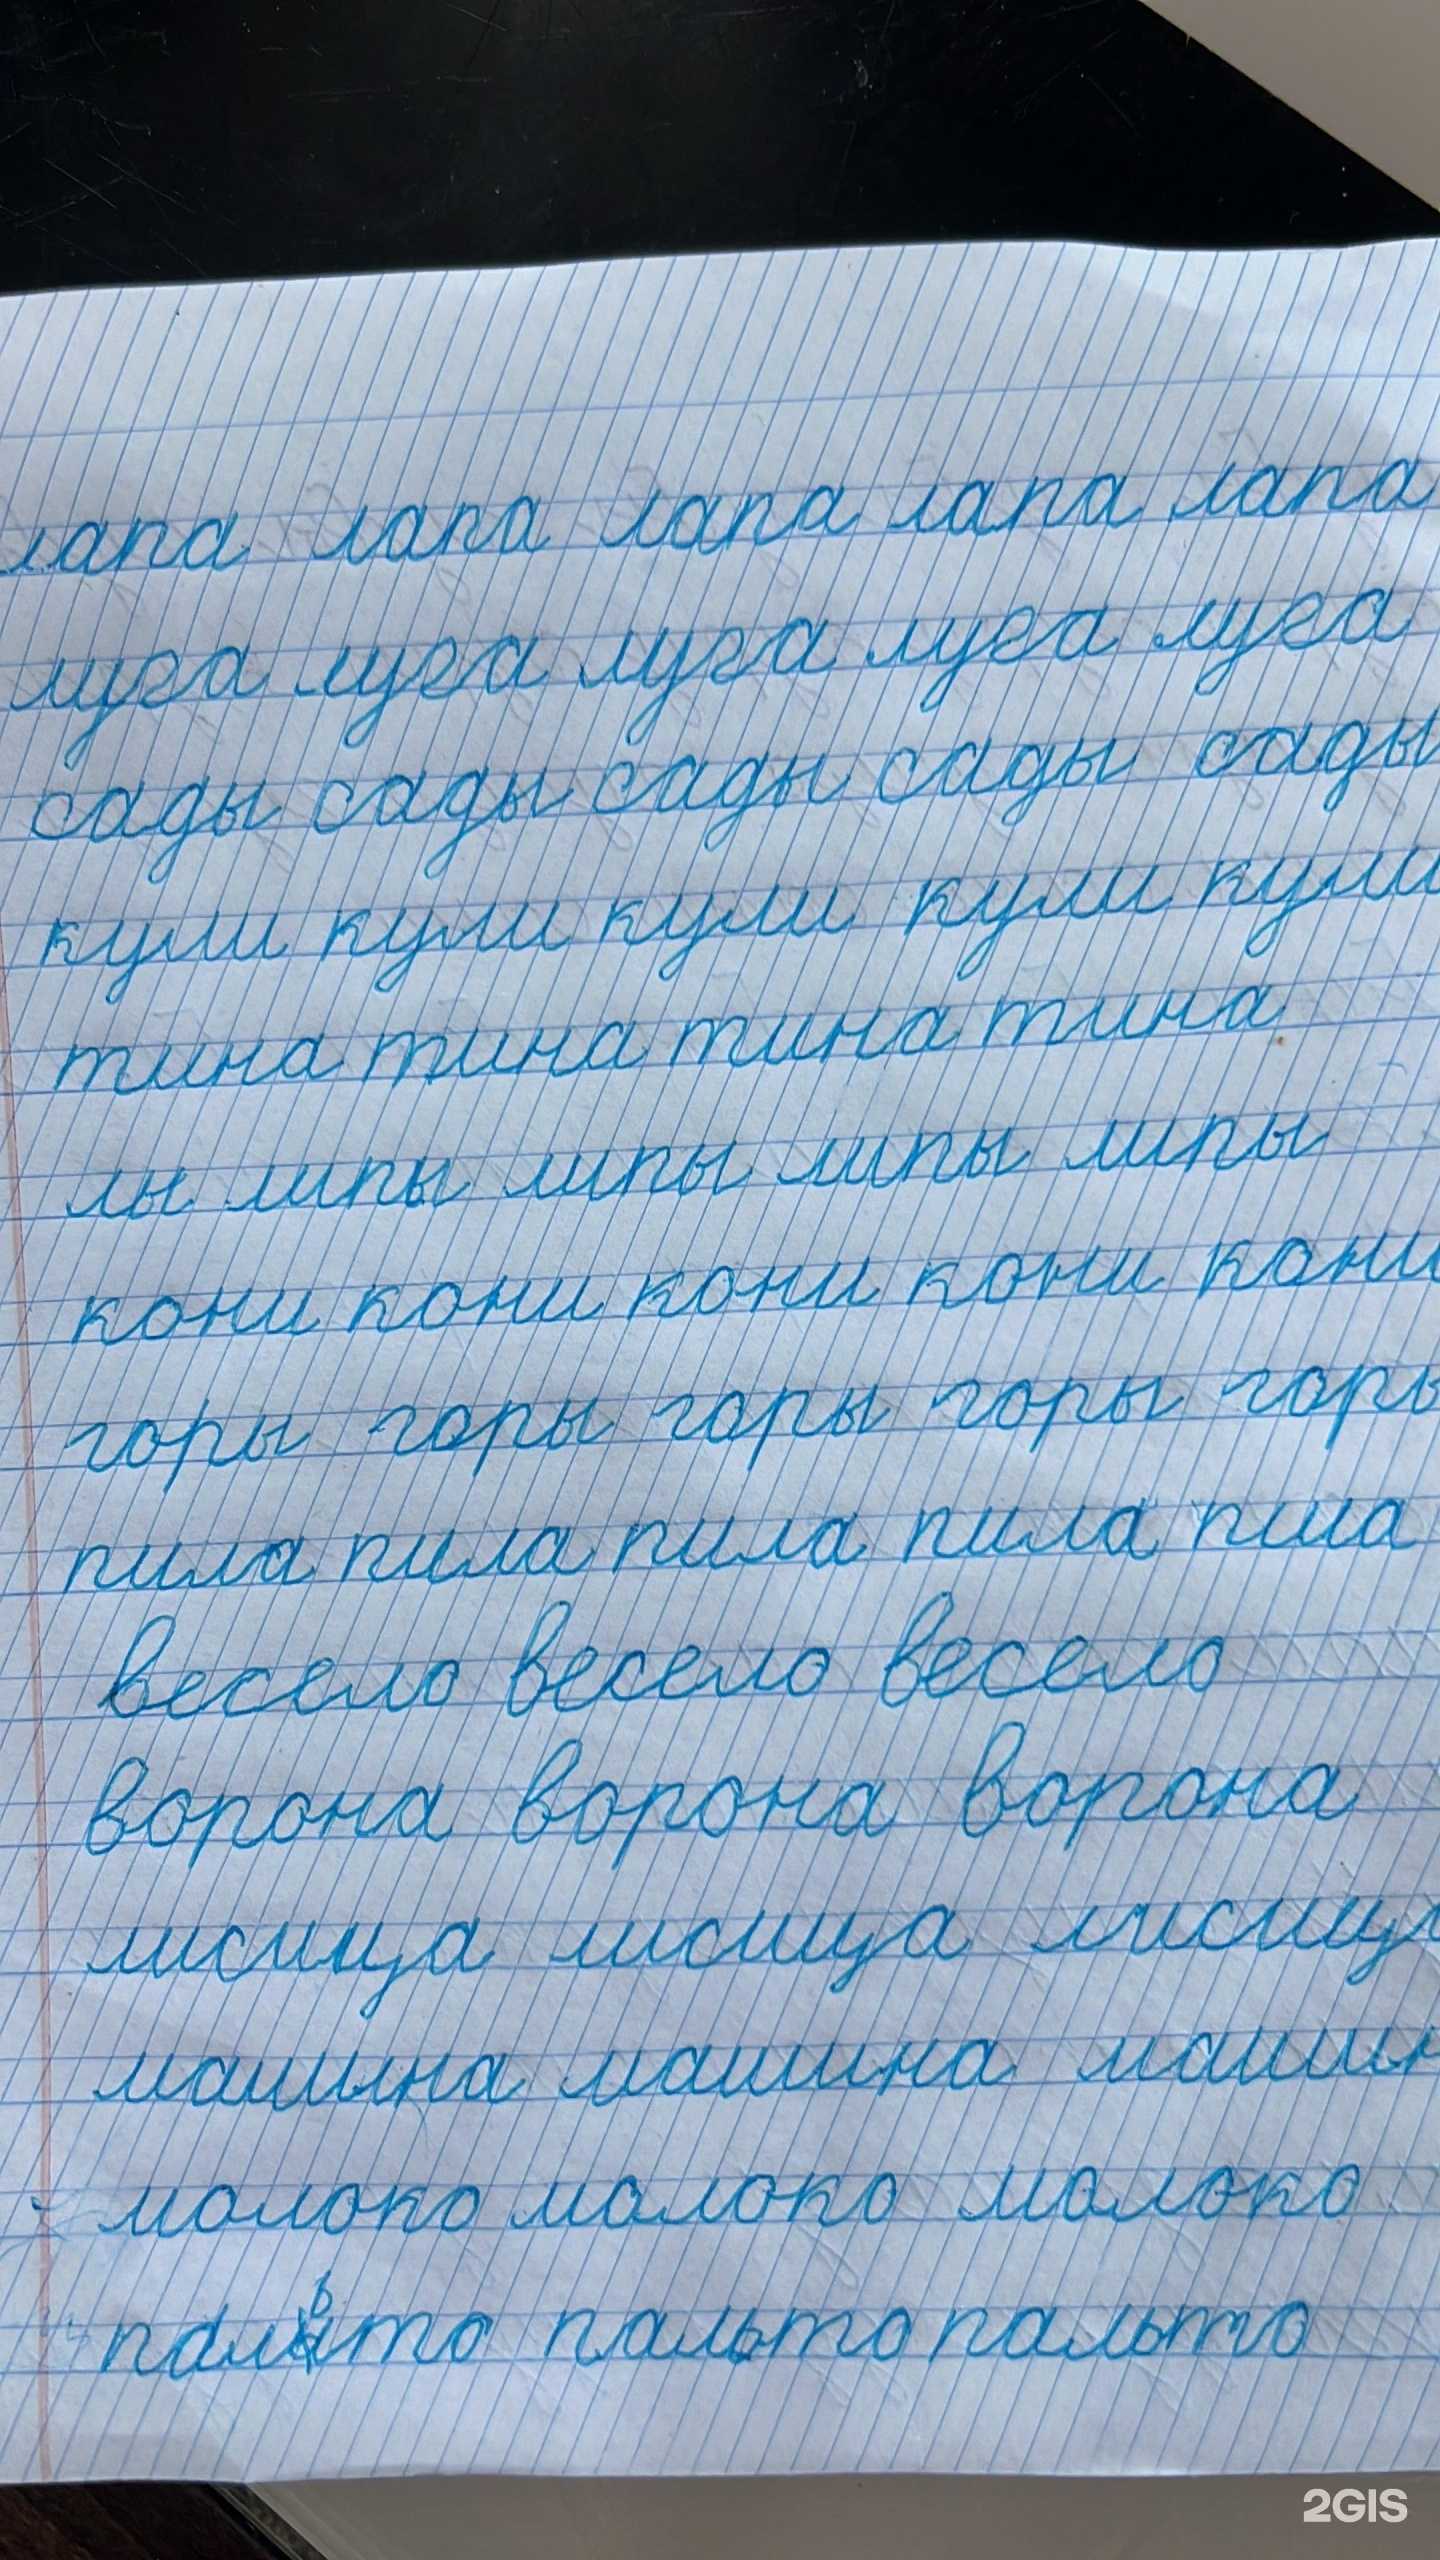 лапа лапа лапа лапа лапа
луга луга луга луга луга
сады сады сады сады сады
кули кули кули кули кули
тина тина тина тина
лы липы липы липы липы
кони кони кони кони кони
горы горы горы горы горы
пила пила пила пила пила
весело весело весело
ворона ворона ворона
лисица лисица лисица
машина машина машин
молоко молоко молоко
пальто пальто пальто
2GIS